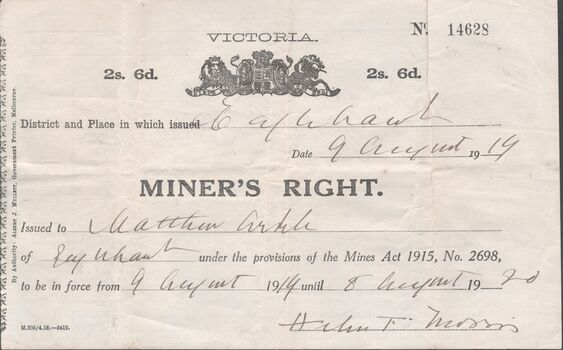 VICTORIA.
No. 14628
2s. 6d. 2s. 6d.
District and Place in which issued Eaglehawk
Date 9 August 1919
MINER'S RIGHT.
Issued to Matthew
of Eaglehawk under the provisions of the Mines Act 1915, No. 2698,
to be in force from 9 August 1919 until 8 August 1920
Morris
By Authority: Albert J. Mullett, Government Printer, Melbourne.